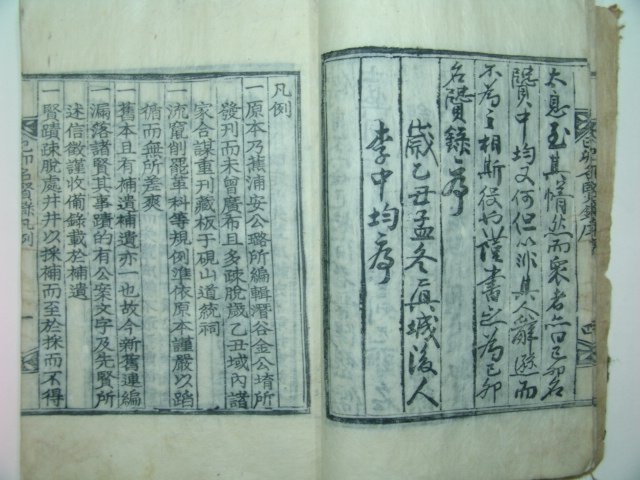 己卯名賢錄序
四
太息至其愴然而衆曰己卯名
賢中均又何但以非其人辭遜而
不為之相斯役也謹書之為己卯
名賢錄之序
歲乙丑孟冬眞城後人
李中均序
凡例
一原本乃蕉浦安公璐所編輯潛谷金公堉所
發刊而未曾廣布且多疎脫歲乙丑域內諸
家合謀重刊藏板于硯山道統祠
一流竄削罷革科等規例準依原本謹嚴以蹈
循而無所差爽
一舊本且有補遺補遺亦一也故今新舊連編
一漏落諸賢其事蹟的有公案文字及先賢所
述信徵謹收備錄載於補遺
一賢蹟疎脫處井井以採補而至於採而不得
己卯名賢錄凡例
一